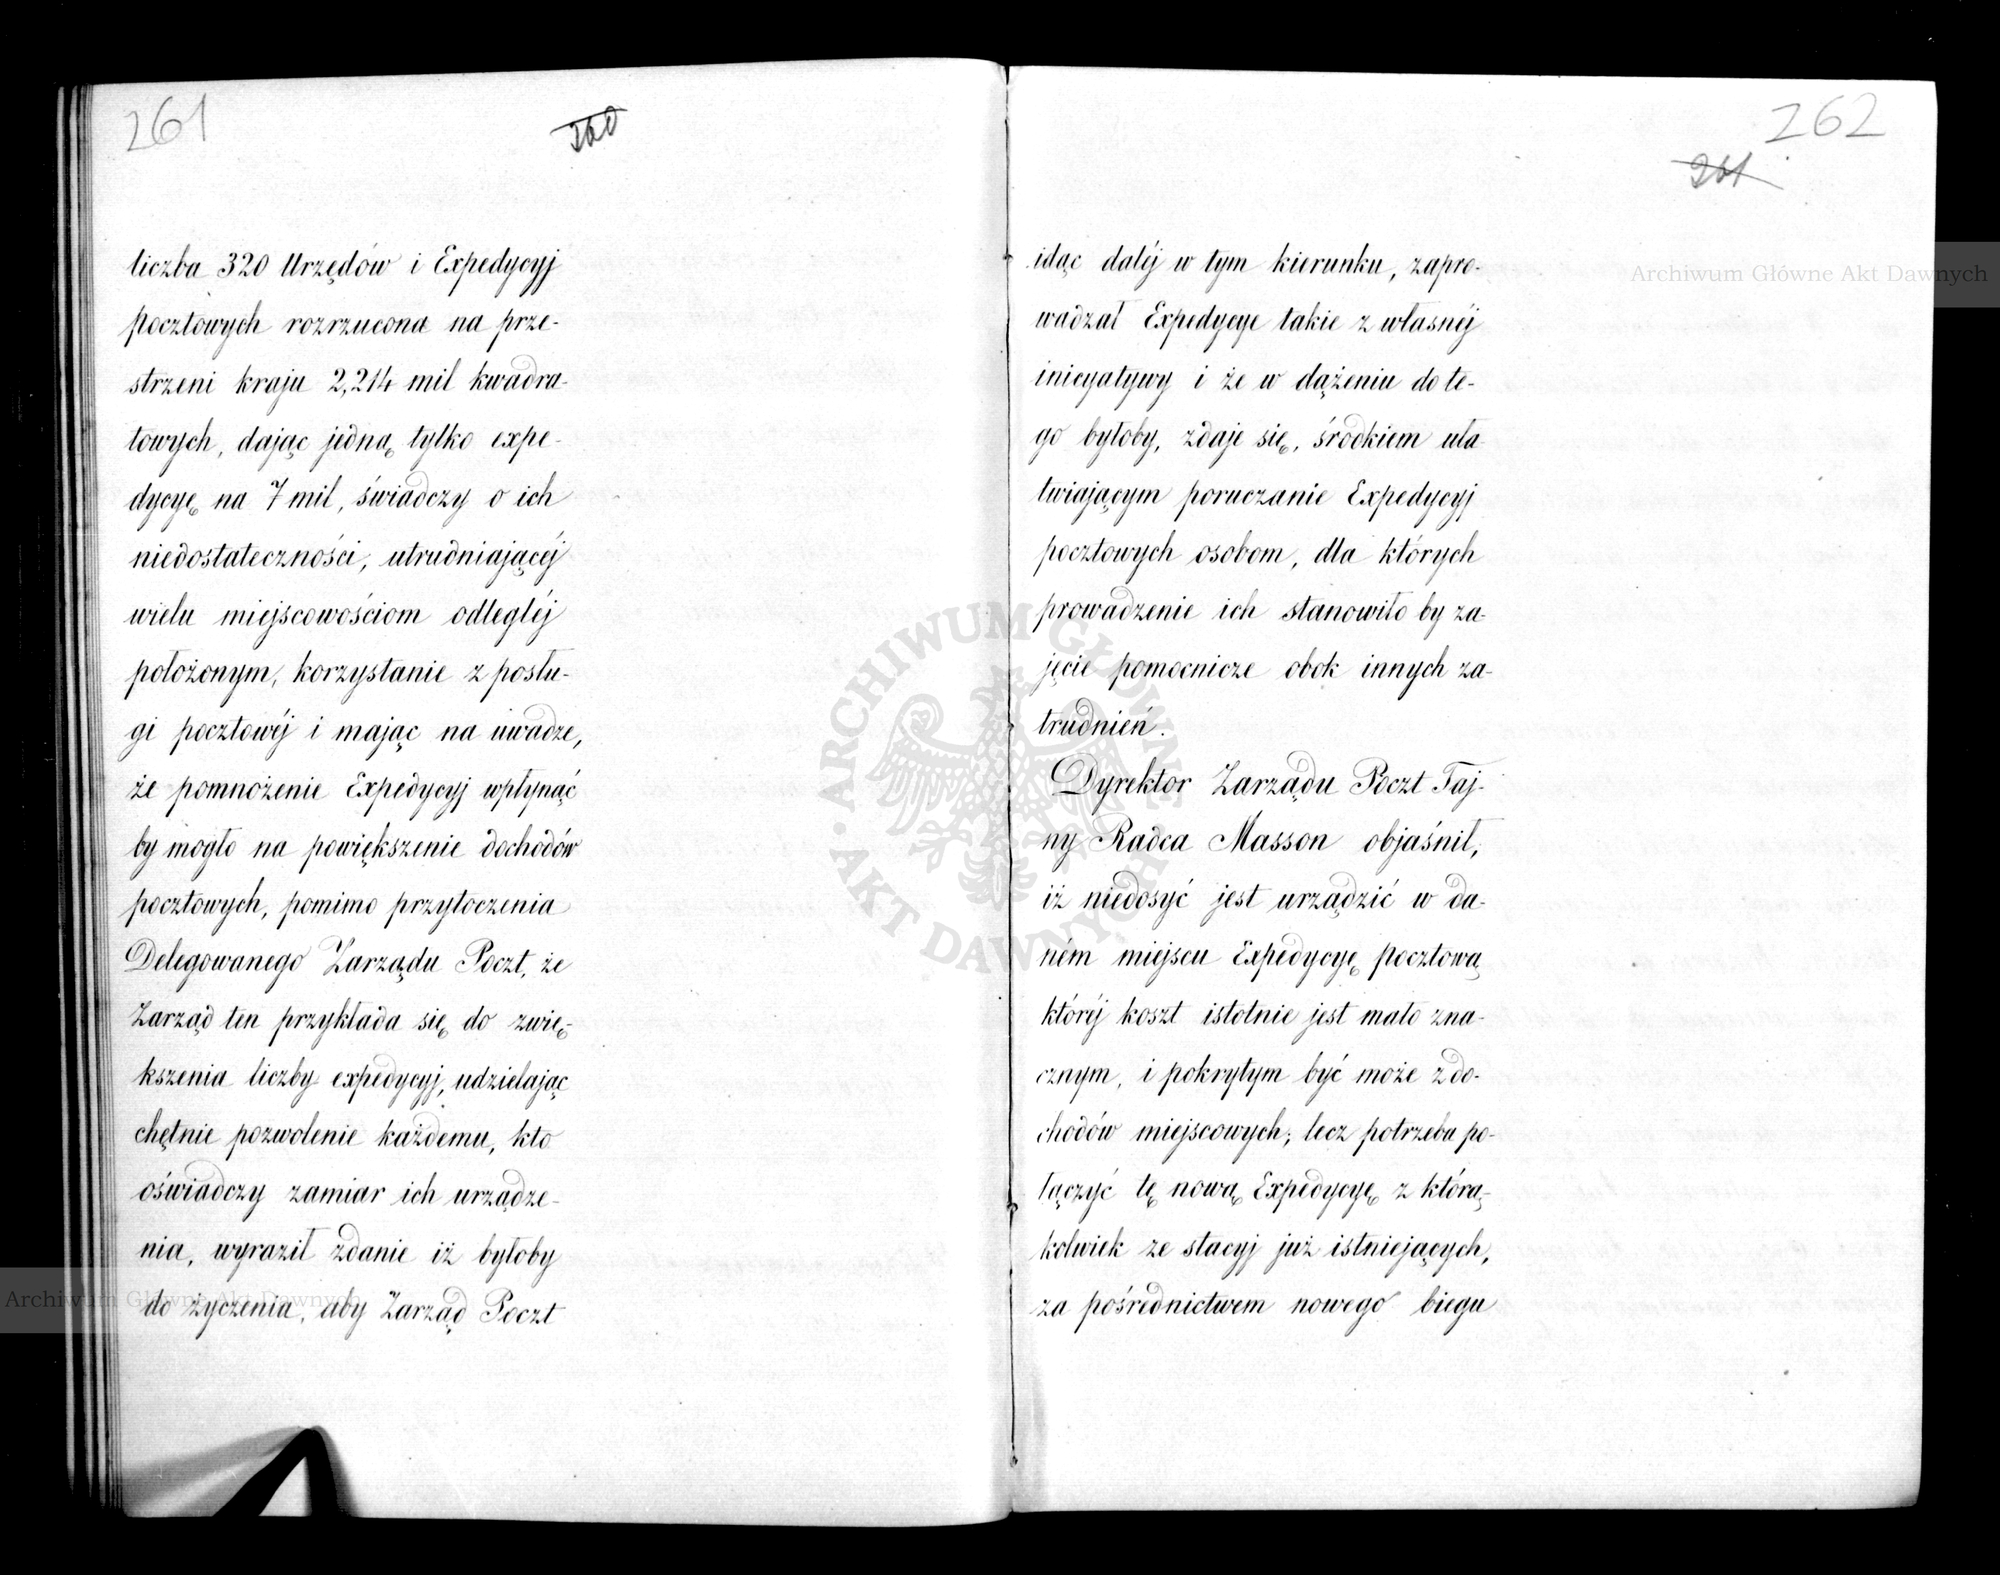 261
260
liczba 320 Urzędów i Expedycyj
pocztowych rozrzucona na prze-
strzeni kraju 2,214 mil kwadra-
towych, dając jedną tylko expe-
dycyę na 7 mil, świadczy o ich
niedostateczności, utrudniającéj
wielu miejscowościom odlegléj
położonym, korzystanie z posłu-
gi pocztowéj i mając na uwadze,
że pomnożenie Expedycyj wpłynąć
by mogło na powiększenie dochodów
pocztowych, pomimo przytoczenia
Delegowanego Zarządu Poczt, że
Zarząd ten przykłada się do zwię-
kszenia liczby expedycyj, udzielając
chętnie pozwolenie każdemu, kto
oświadczy zamiar ich urządze-
nia, wyraził zdanie iż byłoby
do życzenia, aby Zarząd Poczt
262
261
idąc daléj w tym kierunku, zapro-
wadzał Expedycye takie z własnéj
inicyatywy i że w dążeniu do te-
go byłoby, zdaje się, środkiem uła-
twiającym poruczanie Expedycyj
pocztowych osobom, dla których
prowadzenie ich stanowiło by za-
jęcie pomocnicze obok innych za-
trudnień.
Dyrektor Zarządu Poczt Taj-
ny Radca Masson objaśnił,
iż niedosyć jest urządzić w da-
ném miejscu Expedycyę pocztową
któréj koszt istotnie jest mało zna-
cznym, i pokrytym być może z do-
chodów miejscowych; lecz potrzeba po-
łączyć tę nową Expedycyę z którą-
kolwiek ze stacyj już istniejących,
za pośrednictwem nowego biegu
Archiwum Główne Akt Dawnych
Archiwum Główne Akt Dawnych
ARCHIWUM GŁÓWNE AKT DAWNYCH